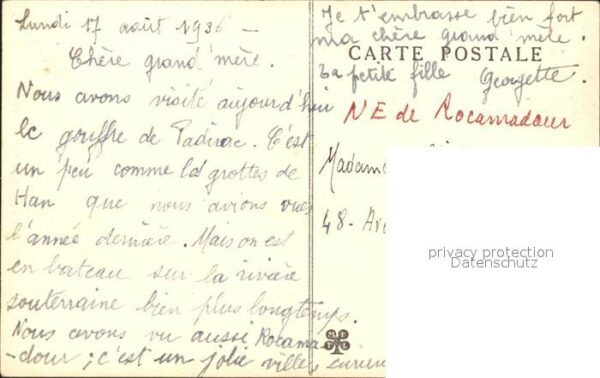 Lundi 17 août 1936 -
Chère grand'mère.
Nous avons visité aujourd'hui
le gouffre de Padirac. C'est
un peu comme la grottes de
Han que nous avions vues
l'année dernière. Mais on est
en bateau sur la rivière
souterraine bien plus longtemps.
Nous avons vu aussi Rocama
-dour ; c'est un jolie ville,
Je t'embrasse bien fort
ma chère grand'mère.
CARTE POSTALE
Ta petite fille Georgette.
NE de Rocamadour
Madame
48 -
privacy protection
Datenschutz